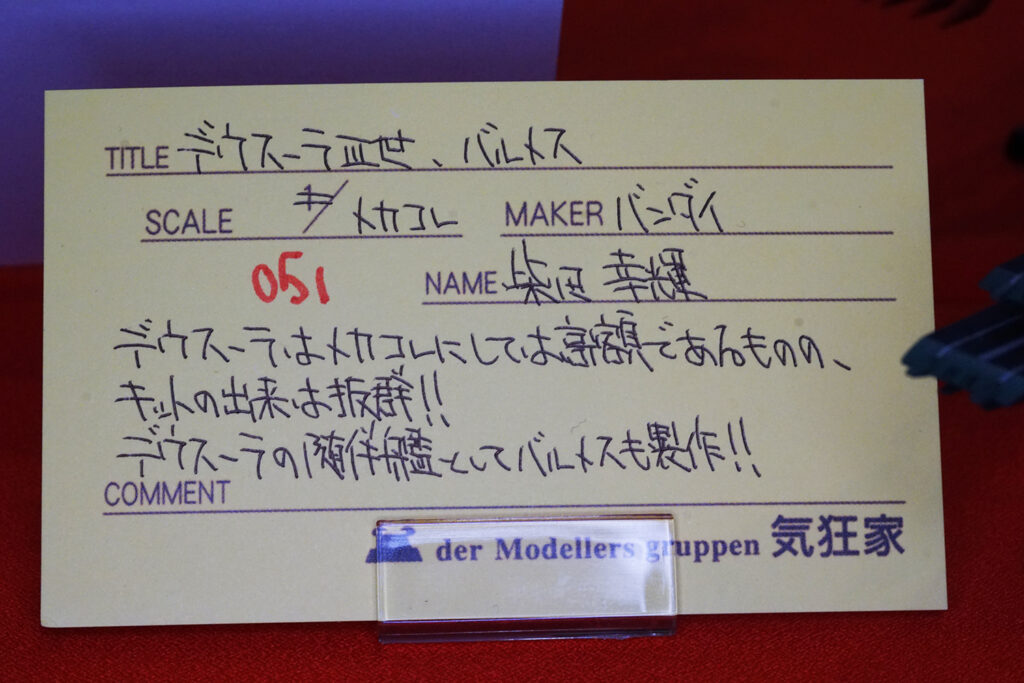 TITLE デウスーラⅢ世、バルメス
SCALE メカコレ MAKER バンダイ
051 NAME 柴田 幸輝
デウスーラはメカコレにしては高額であるものの、
キットの出来は抜群!!
デウスーラの随伴艦としてバルメスも製作!!
COMMENT
der Modellers gruppen 気狂家